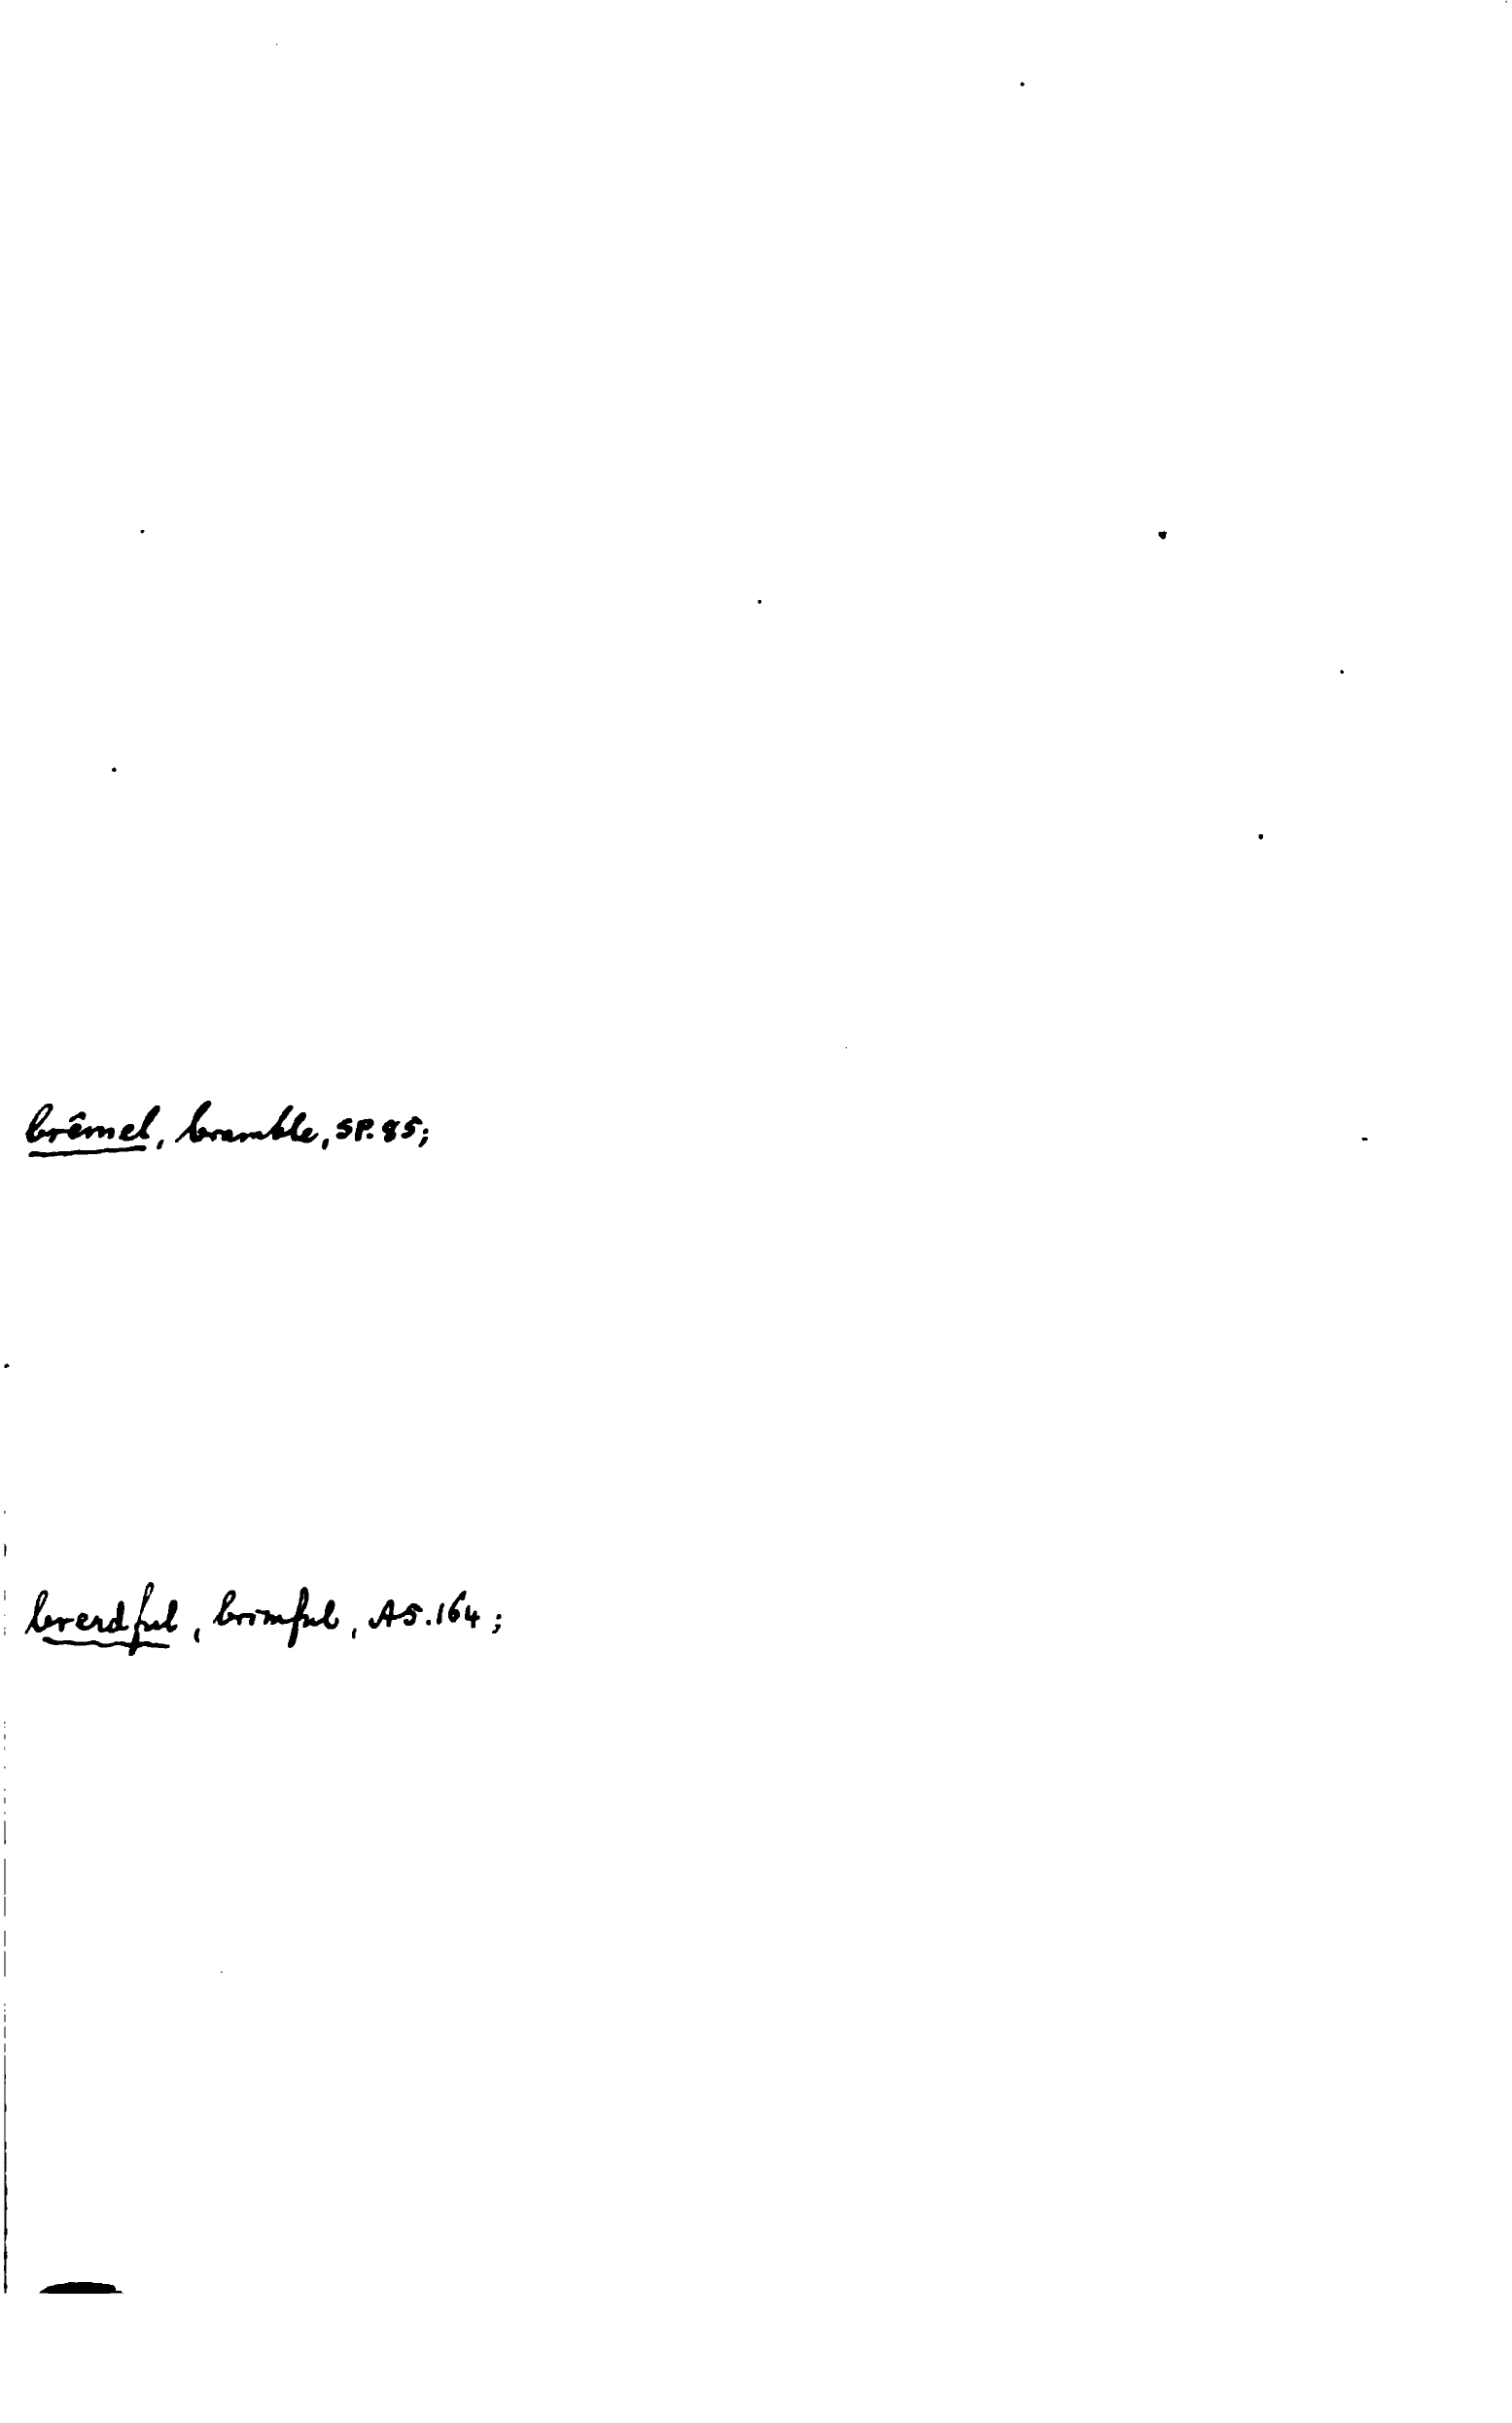 brêmel, bramble, SP. 85;
brerdful, brimful, AS. 164;